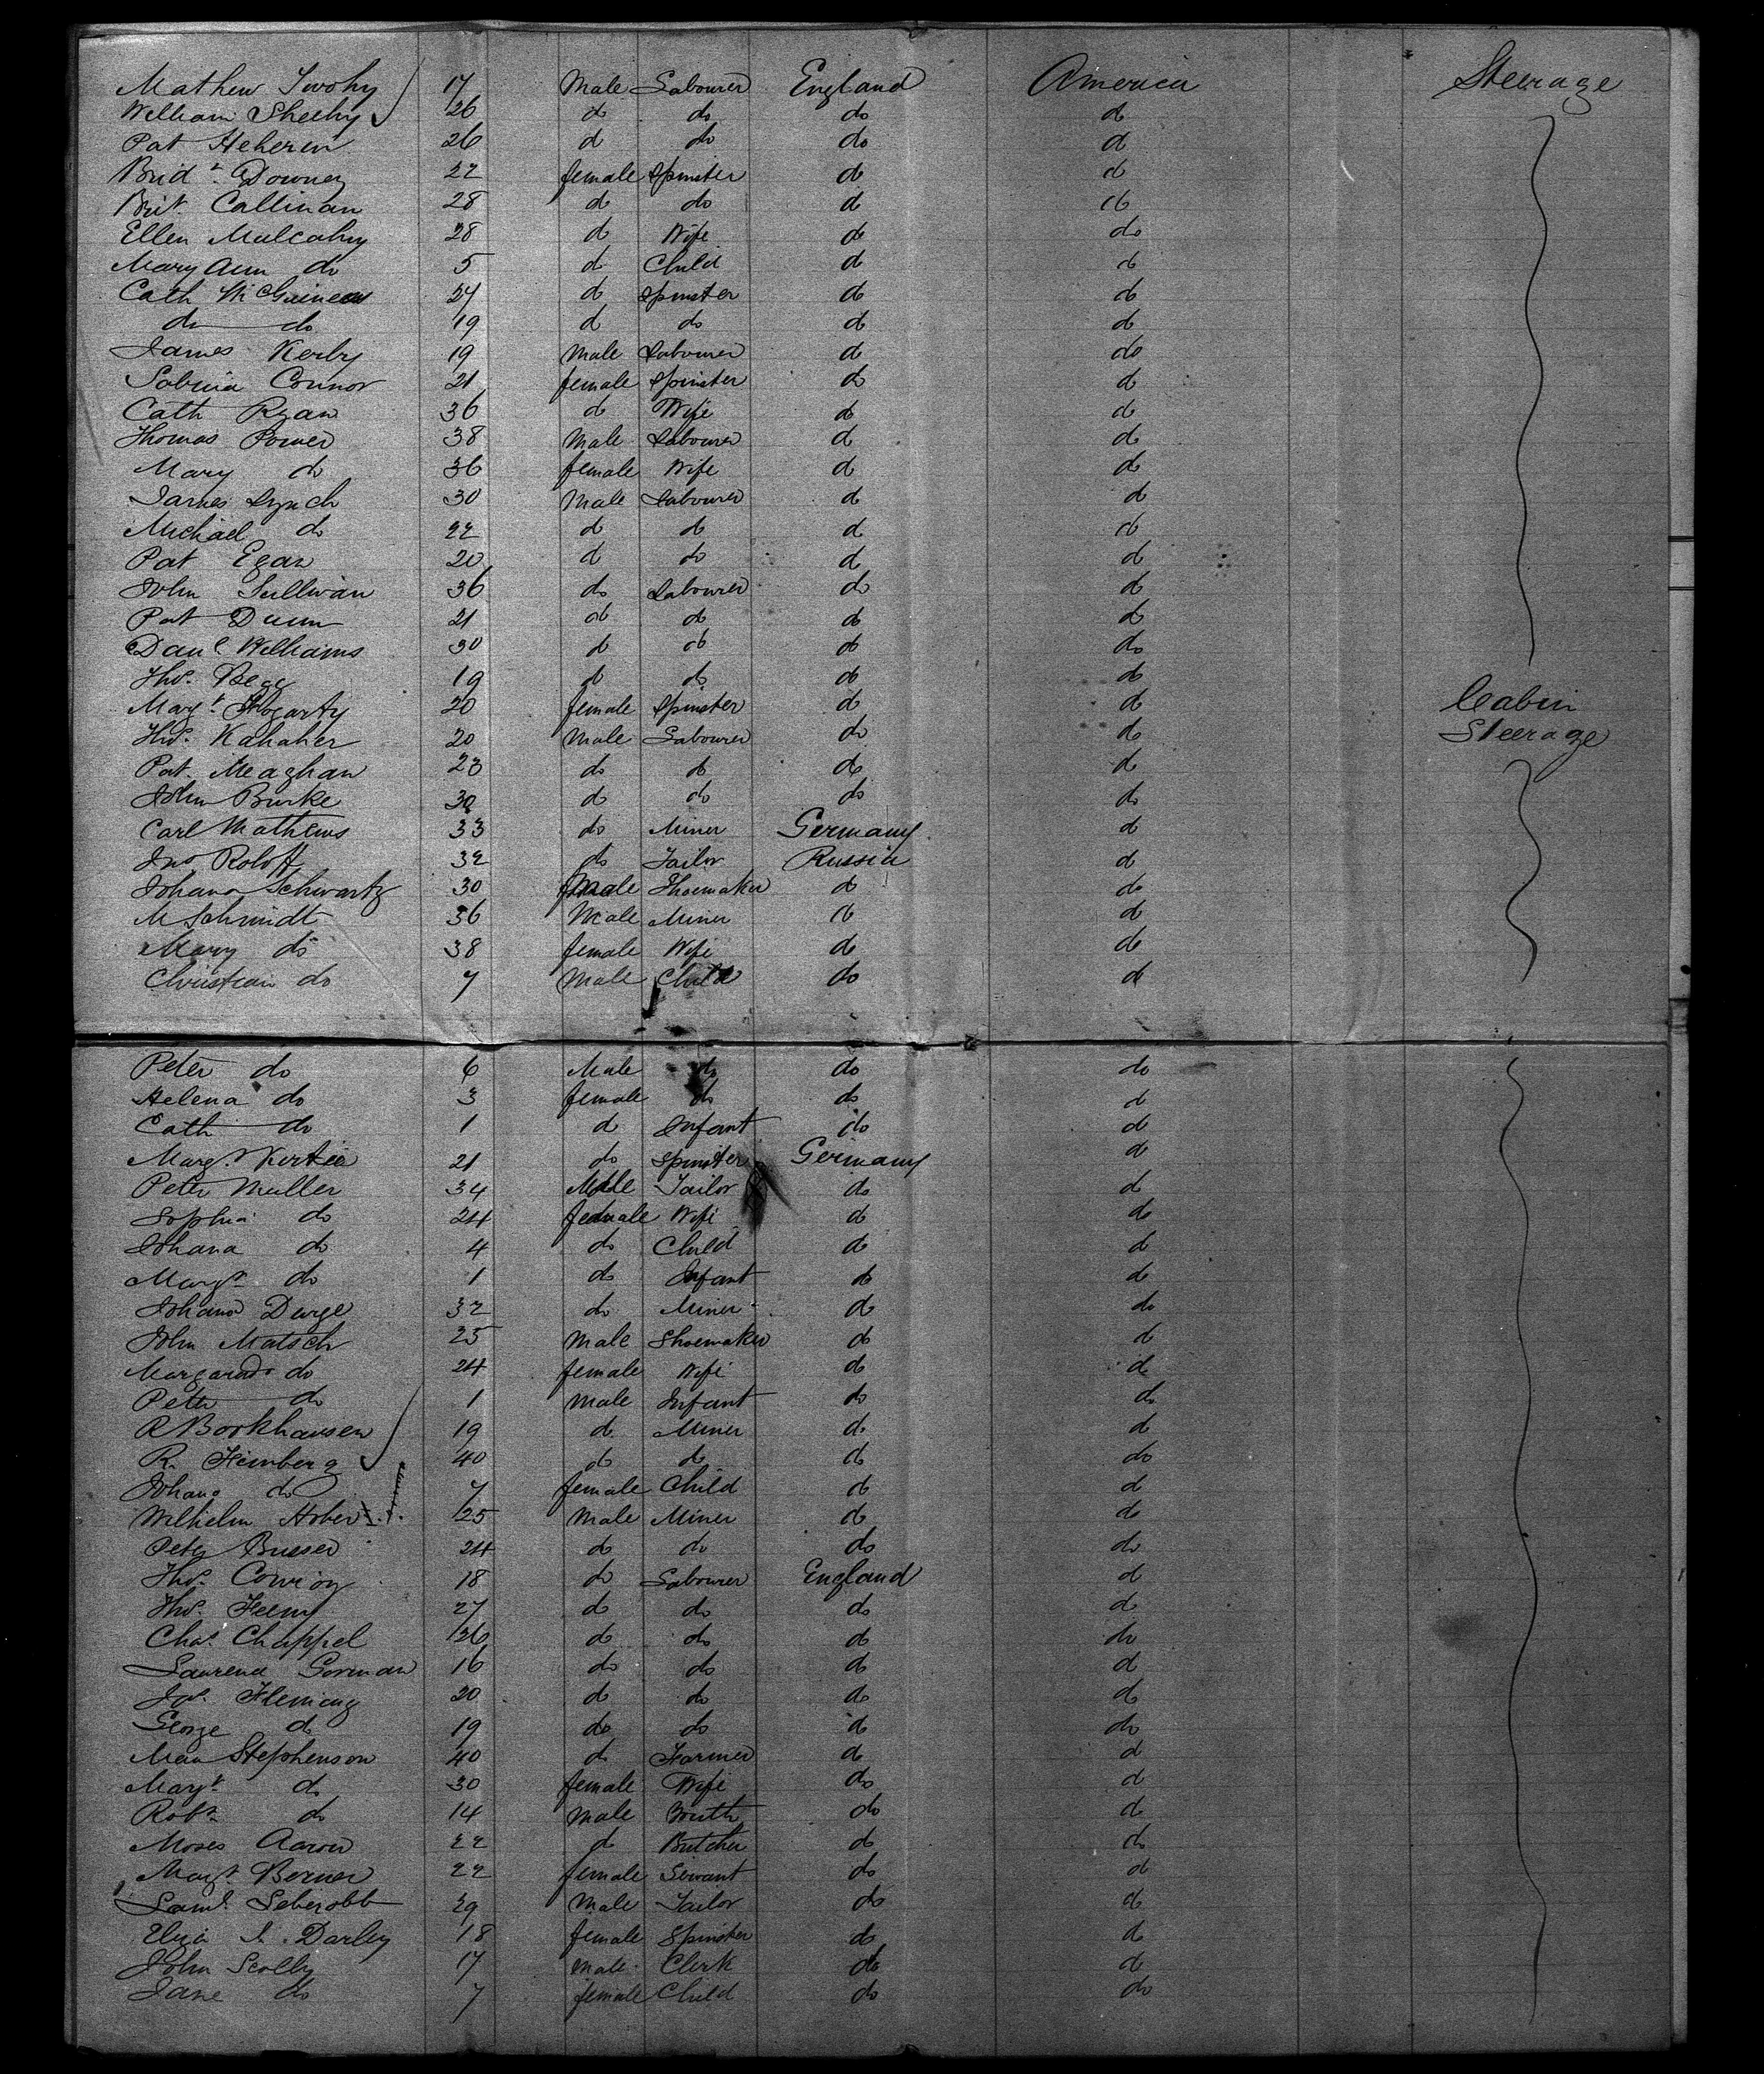 Mathew Twohy 17 Male Labourer England America Steerage
William Sheehy 26 do do do do
Pat Heheren 26 do do do do
Brid.t Downey 22 female Spinster do do
Brit. Callinan 28 do do do do
Ellen Mulcahy 28 do Wife do do
Mary Ann do 5 do Child do do
Cath 24 do Spinster do do
do do 19 do do do do
James Kerby 19 Male Labourer do do
Sabina Connor 21 female Spinster do do
Cath Ryan 36 do Wife do do
Thomas Power 38 Male Labourer do do
Mary do 36 female Wife do do
James Lynch 30 Male Labourer do do
Michael do 22 do do do do
Pat Egan 20 do do do do
John Sullivan 36 do Labourer do do
Pat Dunn 21 do do do do
Danl Williams 30 do do do do
Thos. Begg 19 do do do do
Margt. Hogarty 20 female Spinster do do Cabin
Thos. Kahaher 20 Male Labourer do do Steerage
Pat. Meaghan 23 do do do do
John Burke 30 do do do do
Carl Mathews 33 do Miner Germany do
Jno Roloff 32 do Tailor Russia do
Johana Schwartz 30 Shoemaker do do
M Schmidt 36 Male Miner do do
Mary do 38 female Wife do do
Christian do 7 Male Child do do
Peter do 6 Male do do do
Helena do 3 female do do do
Cath do 1 do Infant do do
Margt. 21 do Spinster Germany do
Peter Muller 34 Male Tailor do do
Sophia do 24 female Wife do do
Johana do 4 do Child do do
Margt. do 1 do Infant do do
Johana Derge 32 do Miner do do
John Matsch 25 Male Shoemaker do do
do 24 female Wife do do
Peter do 1 Male Infant do do
R Borkhausen 19 do Miner do do
R. Heimberg 40 do do do do
Johana do 7 female Child do do
Wilhelm 25 Male Miner do do
Peter Busser 24 do do do do
Thos. Conroy 18 do Labourer England do
Thos. 27 do do do do
Chas. Chappel 26 do do do do
Laurence Gorman 16 do do do do
Jas. Fleming 20 do do do do
George do 19 do do do do
Stephenson 40 do Farmer do do
Margt. do 30 female Wife do do
Robt. do 14 Male Youth do do
Moses Aaron 22 do Butcher do do
Margt. Berner 22 female Servant do do
Saml. 29 Male Tailor do do
Eliza S. Darley 18 female Spinster do do
John Scolly 17 male Clerk do do
Jane do 7 female Child do do